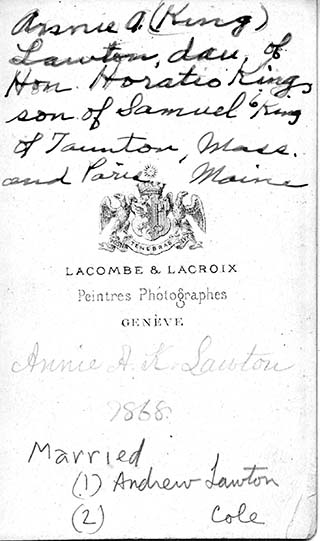 Annie A. (King)
Lawton, dau. of
Hon. Horatio King,
son of Samuel King
of Taunton, Mass.
and Paris Maine
TENEBRAE
LACOMBE & LACROIX
Peintres Photographes
GENÈVE
Annie A. K. Lawton
1868.
Married
(1) Andrew Lawton
(2) Cole